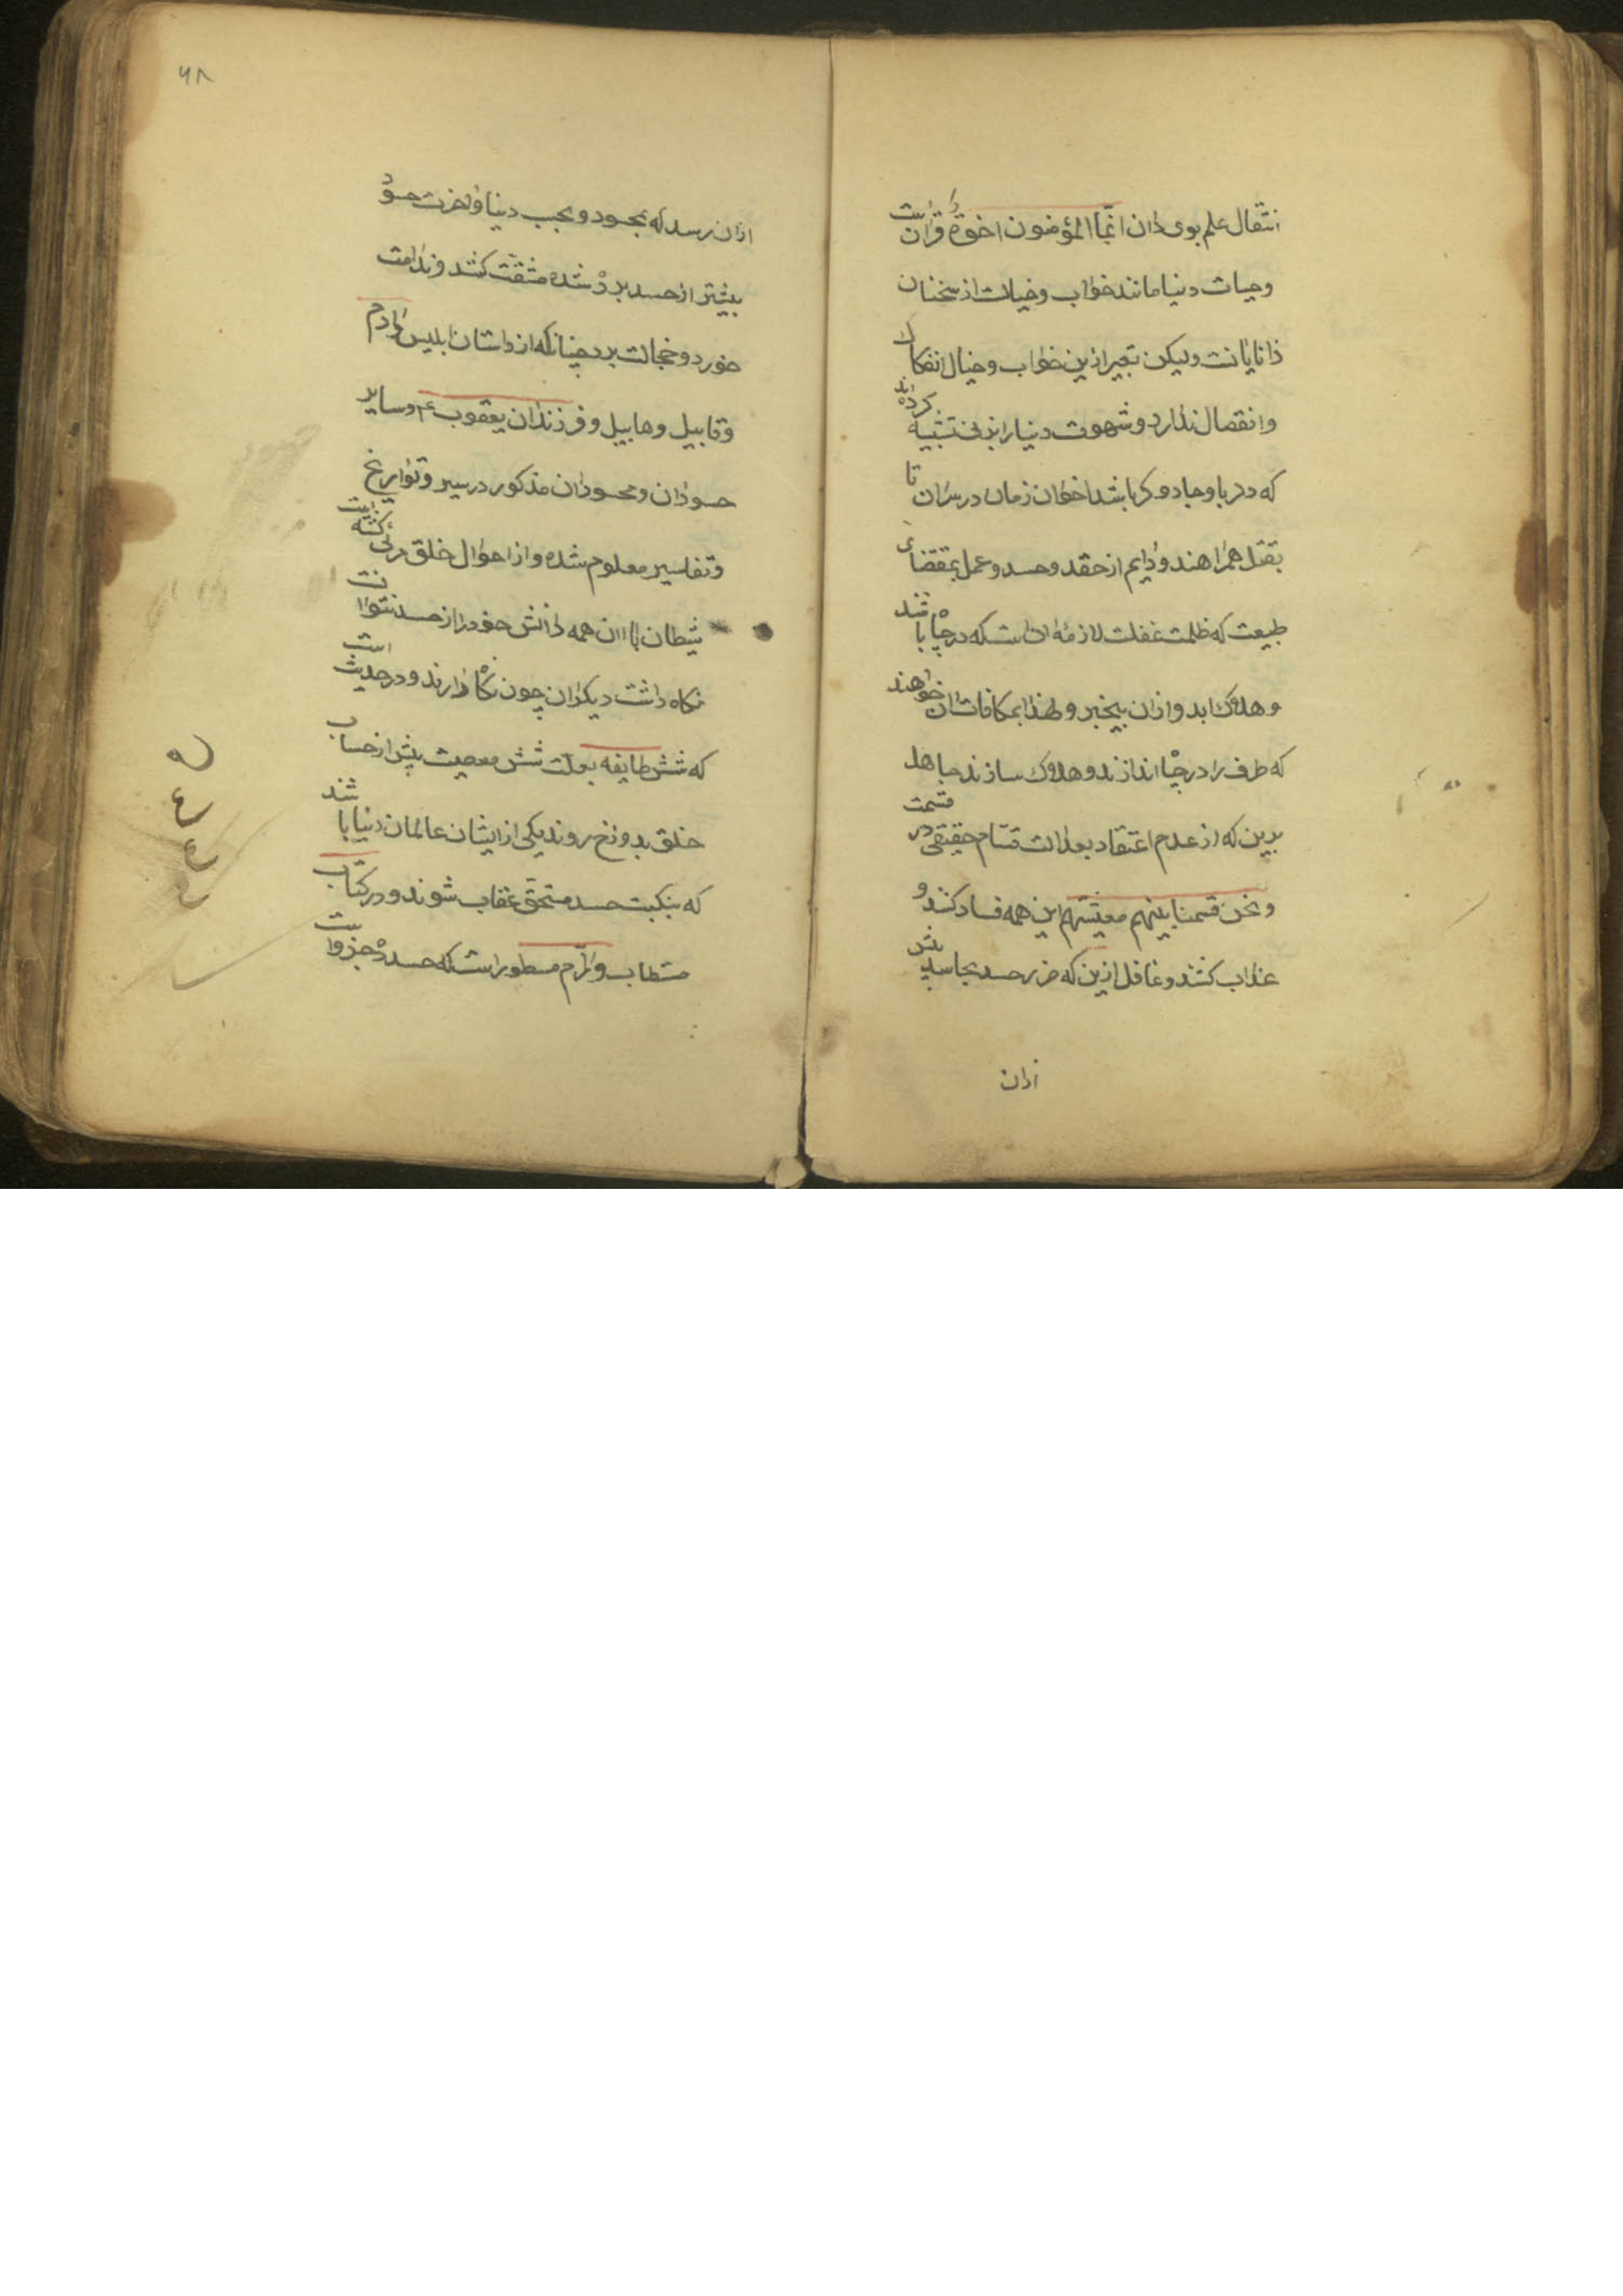 انتقال علم بوی دان انّما المؤمنون اخوة قرانست
وحیات دنیا مانند خواب وخیالت از سخنان
دانایانت ولیکن تعبیر ازین خواب وخیال انفکاک
وانفصال ندارد وشهوت دنیا را تشبیه کرده اند
که در باشد اخوان زمان در سران تا
بقتل همراهند ودایم از حقد وحسد وعمل بمقتضای
طبیعت که ظلمت غفلت لازمهٔ ان است که در چاه باشند
وهلاک ابد وازان بیخبر ولهذا بمکافات ان خواهند
که طرف را در چاه اندازند وهلاک سازند جاهل
بدین که از عدم اعتقاد بعدالت قسّام حقیقی در قسمت
ونحن قسمنا بینهم معیشتهم این همه فساد کنند و
عذاب کشند وغافل ازین که ضرر حسد بحاسد بیش
ازان
۶۸
ازان رسد که بمحسود وبموجب دنیا واخرت حسود
بیشتر از حسد برده شده مشقّت کشد وندامت
خورد وخجالت برد چنانکه از داستان ابلیس وادم
وقابیل وهابیل وفرزندان یعقوب ع م وسایر
حسودان ومحسودان مذکور در سیر وتواریخ
وتفاسیر معلوم شده واز احوال خلق مرئی کشته
شیطان با ان همه دانش خود را از حسد نتوانست
نکاه داشت دیکران چون نکاه دارند ودر حدیث است
که شش طایفه بعلّت شش معصیت پیش از حساب
خلق بدوزخ روند یکی از ایشان عالمان دنیا باشند
که بنکبت حسد مستحقّ عقاب شوند ودر کتاب
مستطاب وارّم مسطور است که حسد